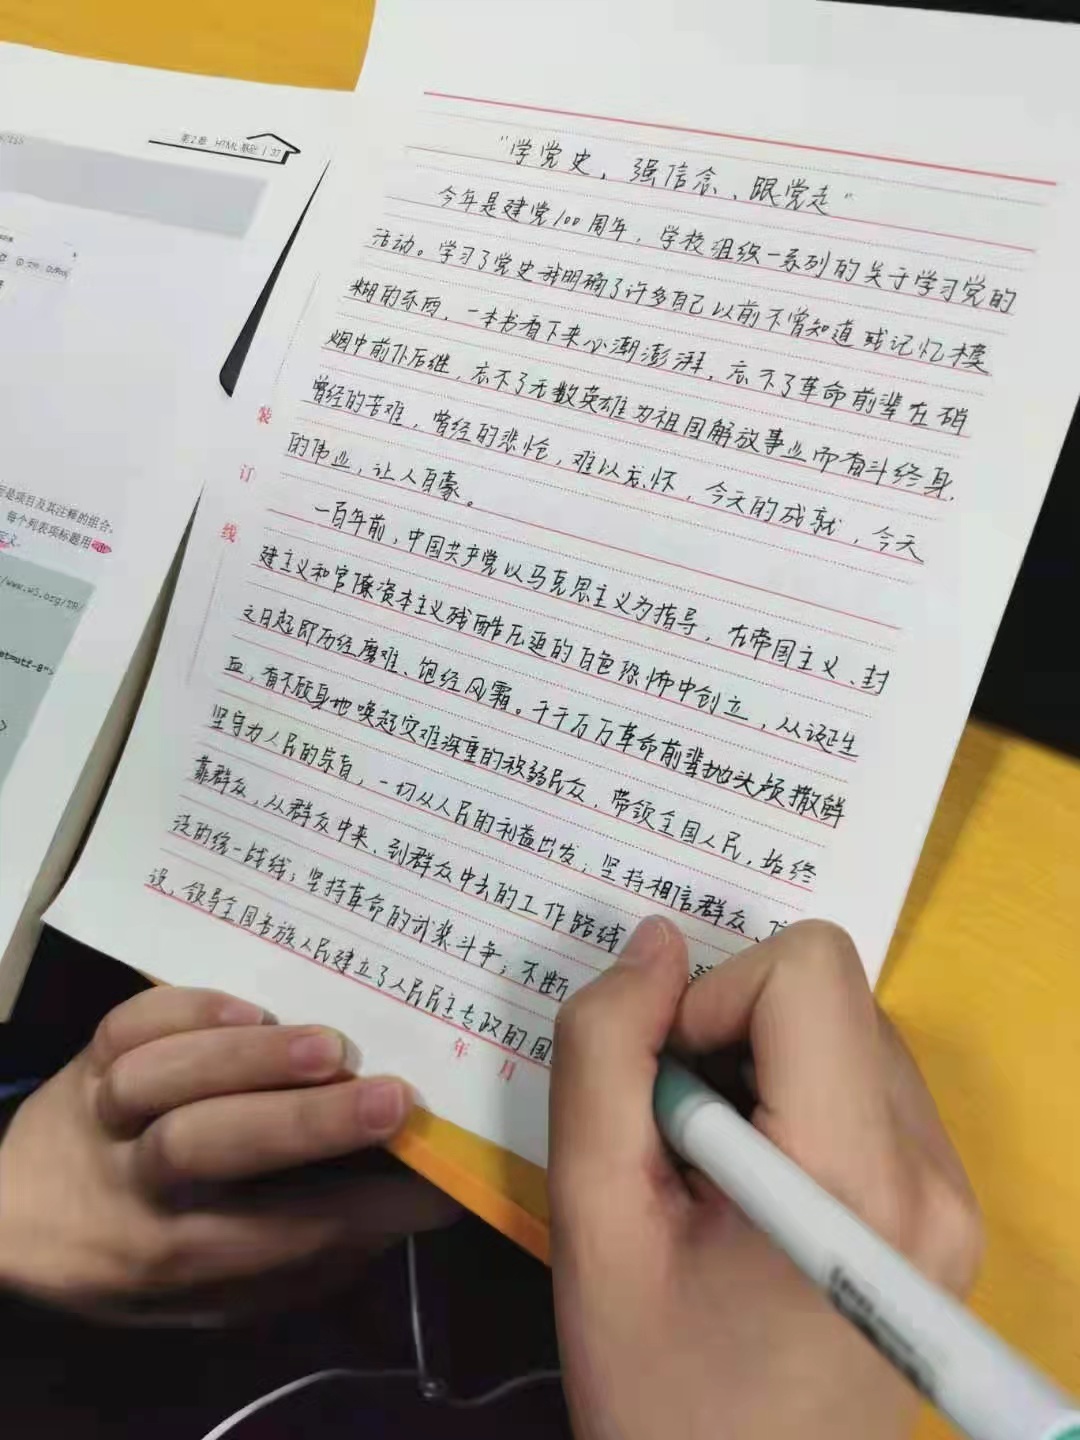 第2章 HTML基础 | 37
是项目及其注释的组合,
每个列表项标题用
定义
/www.w3.org/TR/
装
订
线
"学党史,强信念、跟党走"
今年是建党100周年,学校组织一系列的关于学习党的
活动。学习了党史我明确了许多自己以前不曾知道或记忆模
糊的东西,一本书看下来心潮澎湃,忘不了革命前辈在硝
烟中前仆后继,忘不了无数英雄为祖国解放事业而奋斗终身,
曾经的苦难,曾经的悲怆,难以忘怀,今天的成就,今天
的伟业,让人自豪。
一百年前,中国共产党以马克思主义为指导,在帝国主义、封
建主义和官僚资本主义残酷压迫的白色恐怖中创立,从诞生
之日起即历经磨难、饱经风霜。千千万万革命前辈抛头颅撒鲜
血,奋不顾身地唤起灾难深重的积弱民众,带领全国人民,始终
坚守为人民的宗旨,一切从人民的利益出发;坚持相信群众、
靠群众,从群众中来、到群众中去的工作路线
泛的统一战线;坚持革命的武装斗争;不断
设,领导全国各族人民建立了人民民主专政的国
年 月